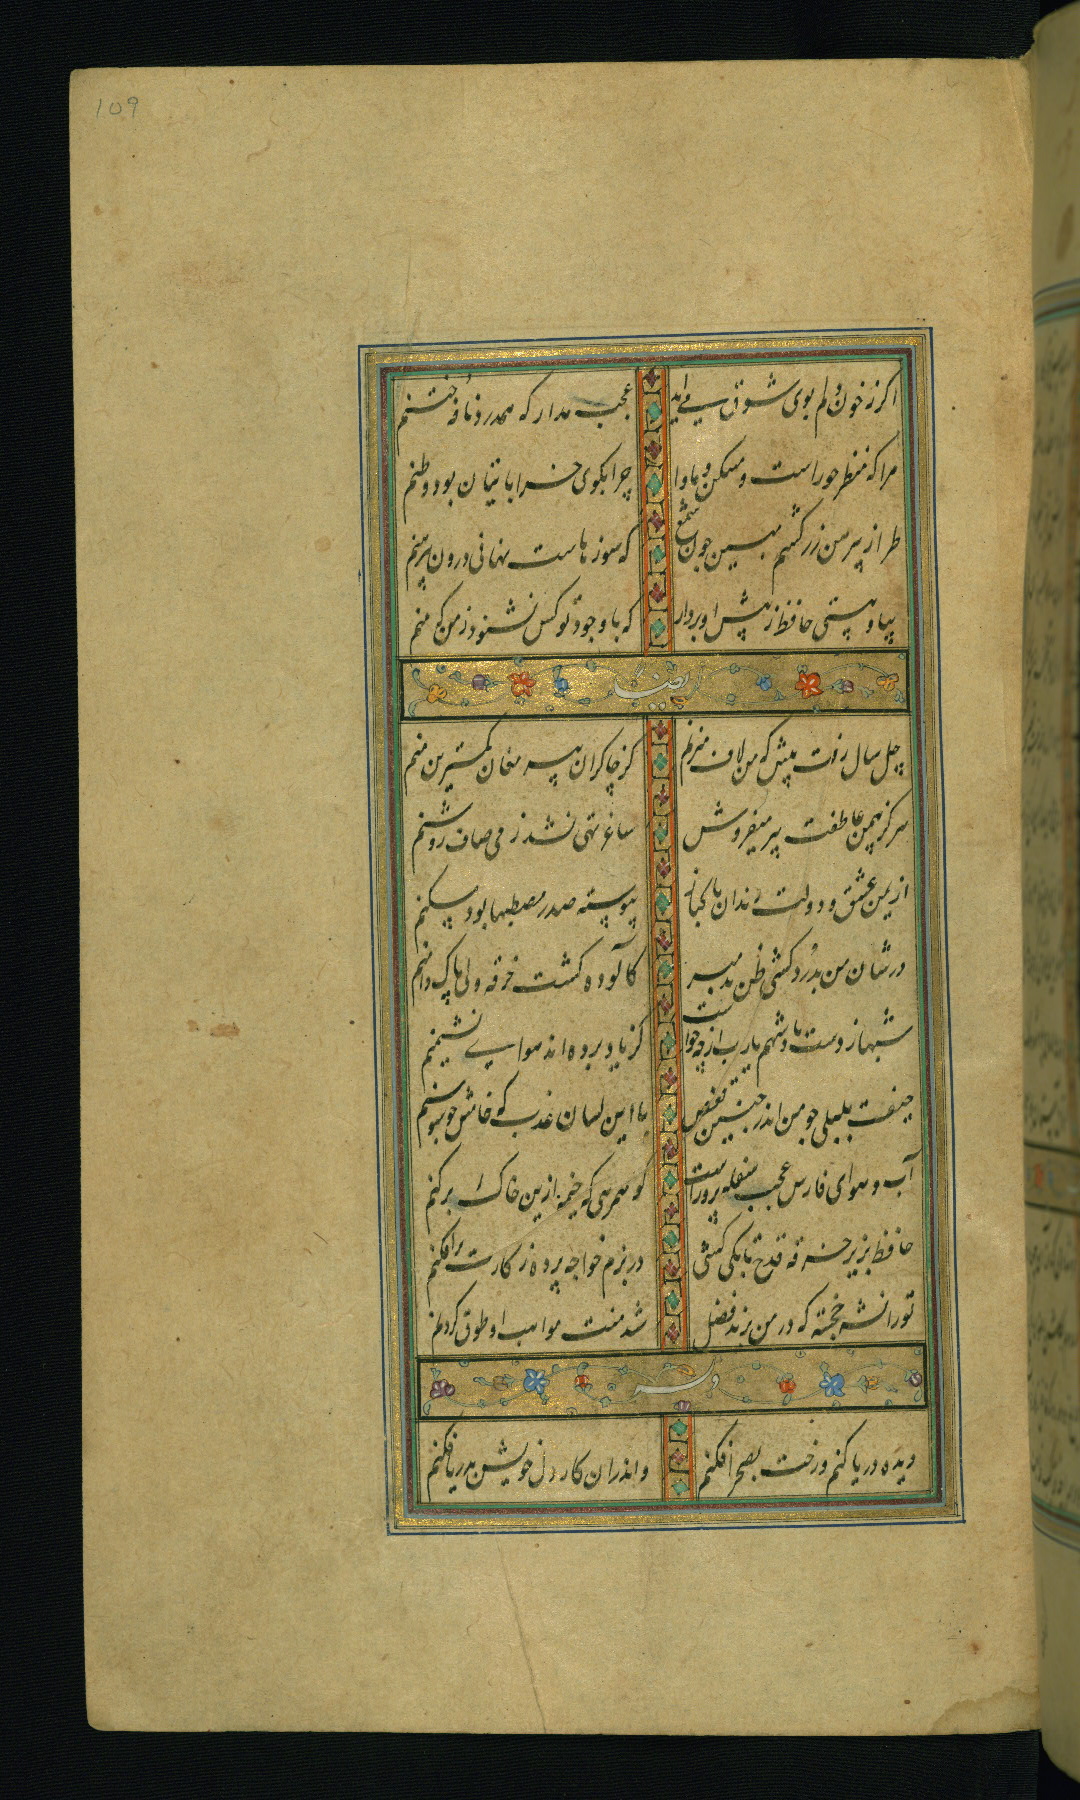 109
اکر ز خون دلم بوی شوق می آید عجب مدار که همدرد نافه ختنم
مرا که منظر حوراست و مسکن و ماوا چرا بکوی خراباتیان بود وطنم
طراز پیرهن زرکشم مبین چون شمع که سوزهاست نهانی درون پیرهنم
بیا و هستی حافظ ز پیش او بردار که با وجود تو کس نشنود ز من که منم
ایضا
چل سال رفت بیش که من لاف میزنم کز چاکران پیر مغان کمترین منم
هرکز بیمن عاطفت پیر میفروش ساغر تهی نشد ز می صاف روشنم
از یمن عشق و دولت رندان پاکباز پیوسته صدر مصطبها بود مسکنم
در شان من بدرد کشی ظن بد مبر کالوده کشت خرقه ولی پاک دامنم
شهباز دست پادشهم یارب از چه خواست کز یاد برده اند هوای نشیمنم
حیفست بلبلی چو من اندر چنین قفص با این لسان عذب که خامش چو سوسنم
آب و هوای فارس عجب سفله پرور است کو همرهی که خیمه ازین خاک برکنم
حافظ بزیر خرقه قدح تا بکی کشی در بزم خواجه پرده ز کارت برافکنم
تورانشه خجسته که در من یزید فضل شد منت مواهب او طوق کردنم
وله
دیده دریا کنم و رخت بصحرا فکنم واندران کار دل خویش بدریا فکنم